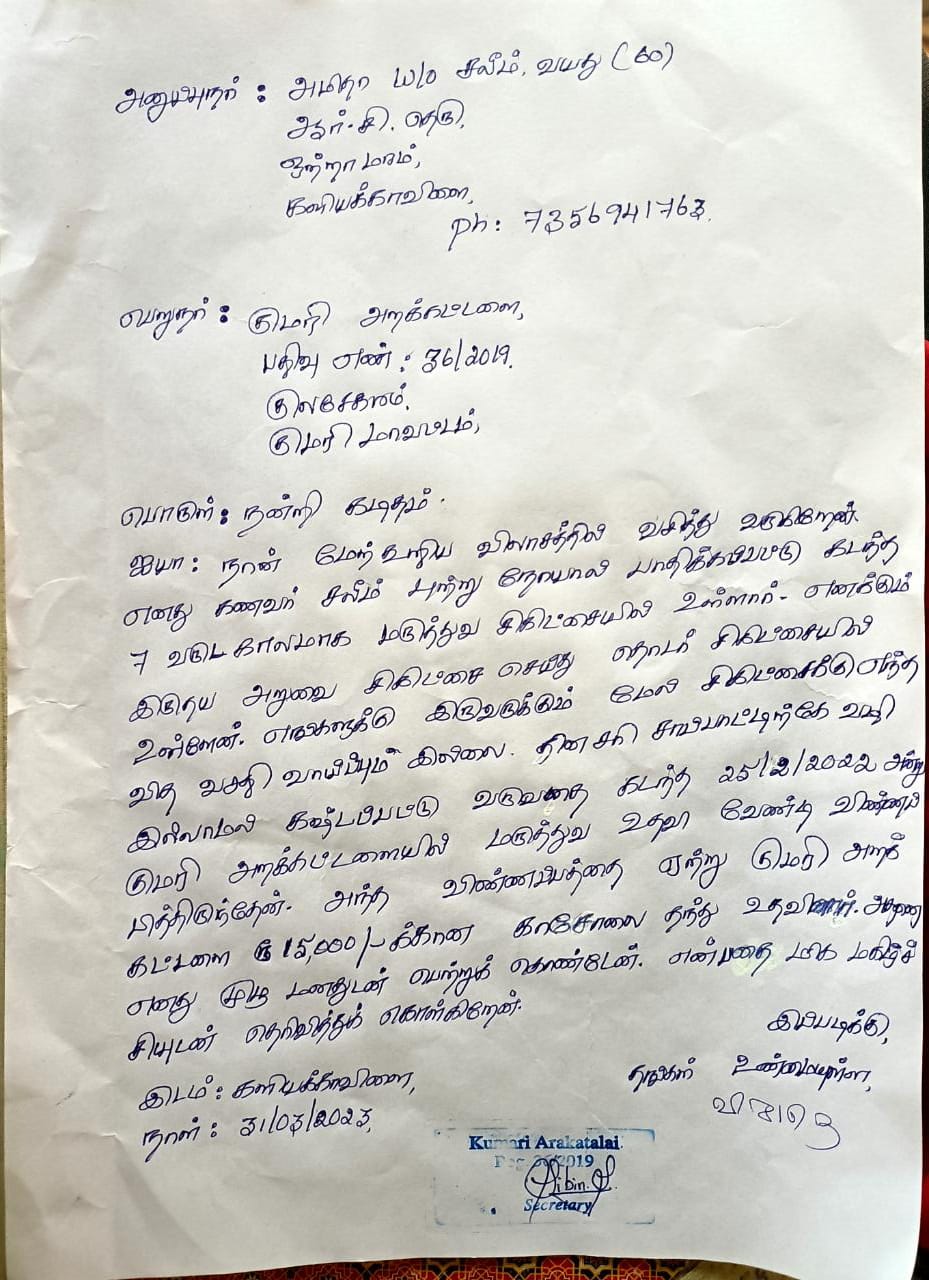 அனுப்புநர் : அமிதா W/o சலீம், வயது (60)
ஆர்.சி. தெரு,
ஒற்றாமரம்,
களியக்காவிளை,
ph: 7356941763.
பெறுநர் : குமரி அறக்கட்டளை,
பதிவு எண் : 36/2019.
குலசேகரம்.
குமரி மாவட்டம்,
பொருள்: நன்றி கடிதம்.
ஐயா: நான் மேற்கூறிய விலாசத்தில் வசித்து வருகிறேன்.
எனது கணவர் சலீம் புற்று நோயால் பாதிக்கப்பட்டு கடந்த
7 வருட காலமாக மருத்துவ சிகிட்சையில் உள்ளார். எனக்கும்
இருதய அறுவை சிகிட்சை செய்து தொடர் சிகிட்சையில்
உள்ளேன். எங்களுக்கு இருவருக்கும் மேல் சிகிட்சைக்கு எந்த
வித வசதி வாய்ப்பும் இல்லை. தினசரி சாப்பாட்டிற்கே வழி
இல்லாமல் கஷ்டப்பட்டு வருவதை கடந்த 25/2/2022 அன்று
குமரி அறக்கட்டளையில் மருத்துவ உதவி வேண்டி விண்ணப்
பித்திருந்தேன். அந்த விண்ணப்பத்தை ஏற்று குமரி அறக்
கட்டளை ரூ 15,000/- க்கான காசோலை தந்து உதவினார். அதனை
எனது முழு மனதுடன் பெற்றுக் கொண்டேன். என்பதை மிக மகிழ்ச்
சியுடன் தெரிவித்துக் கொள்கிறேன்.
இப்படிக்கு,
இடம் : களியக்காவிளை,
தங்கள் உண்மையுள்ள,
நாள் : 31/03/2023.
Kumari Arakatalai
Reg. 36/2019
Aibin.S.
Secretary